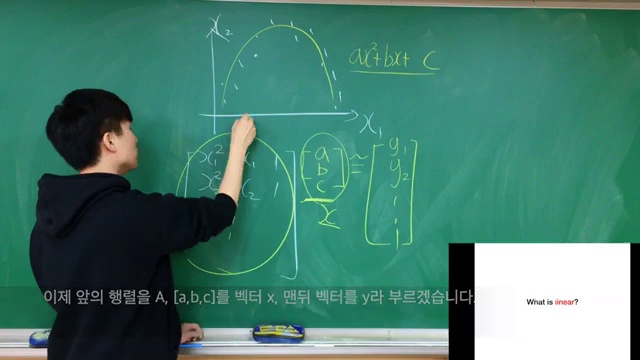 x₂
ax²+bx+ c
x₁
x₁² x₁ 1
x₂² x₂ 1
a
b
c
≈
y₁
y₂
x
이제 앞의 행렬을 A, [a,b,c]를 벡터 x, 맨뒤 벡터를 y라 부르겠습니다.
What is iinear?